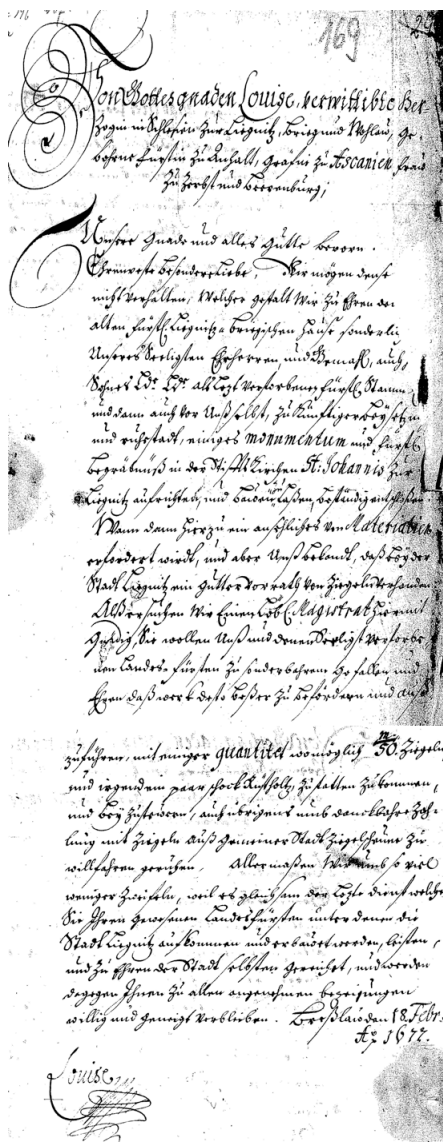 169
Von Gottes gnaden Louise, verwittibte Her
Zogin in Schlesien Zur Liegnitz, Brieg und Wohlau, ge
bohrne Fürstin Zu Anhalt, Gräfin Zu Ascanien, Frau
Zu Zerbst und Beerenburg;
Unsere Gnade und alles Gutte bevorn.
Ehrenveste besonder Liebe. Wir mögen denselben
nicht verhalten, Welcher gestalt Wir Zu Ehren des
alten Fürstl. Liegnitz- briegischen Hauses sonderlich
Unseres Seeligsten Eheherren und Gemahl, auch
Sohnes Ldr. Ldr. als letzt verstorbenen Fürstl. Stammes
und dann auch vor Unß selbst, Zu künfftiger beysetzung
und ruhestadt, einiges monumentum und Fürstl.
begräbnüß in der Stifftskirchen St. Johannis Zur
Liegnitz aufrichten, und bauen laßen, beständig entschloßen
Wann dann hierzu ein ansehliches von Materialien
erfordert wirdt, und aber Unß bekandt, daß bey der
Stadt Liegnitz ein gutter vorrath von Ziegeln verhanden
Alß ersuchen Wir Einen Löbl. Magistrat hiermit
Gnädig, Sie wollen Unß und denen Seeligst verstorbe
nen Landes-fürsten Zu sonderbahrem gefallen und
Ehren daß werk desto beßer Zu befördern und auß
Zuführen, mit einiger quantitet womöglich m/50. Ziegeln
und irgend ein paar schock Rüstholtz, Zustatten Zukommen,
und bey Zusteuern, auch übrigens umb danckbahre Zah-
lung mit Ziegeln auß gemeiner Stadt Ziegelscheune Zu
willfahren geruhen. Allermaßen Wir umb so viel
weniger Zweifeln, weil es gleichsam der Letzte dienst welchen
Sie Ihren gewesenen Landesfürsten unter denen die
Stadt Liegnitz aufkommen und erbauet worden, leisten,
und Zu Ehren der Stadt selbsten gereichet, und werden
dagegen Ihnen Zu allen angenehmen bezeigungen
willig und geneigt verbleiben. Breßlau den 18. Febr.
Ao. 1677.
Louise